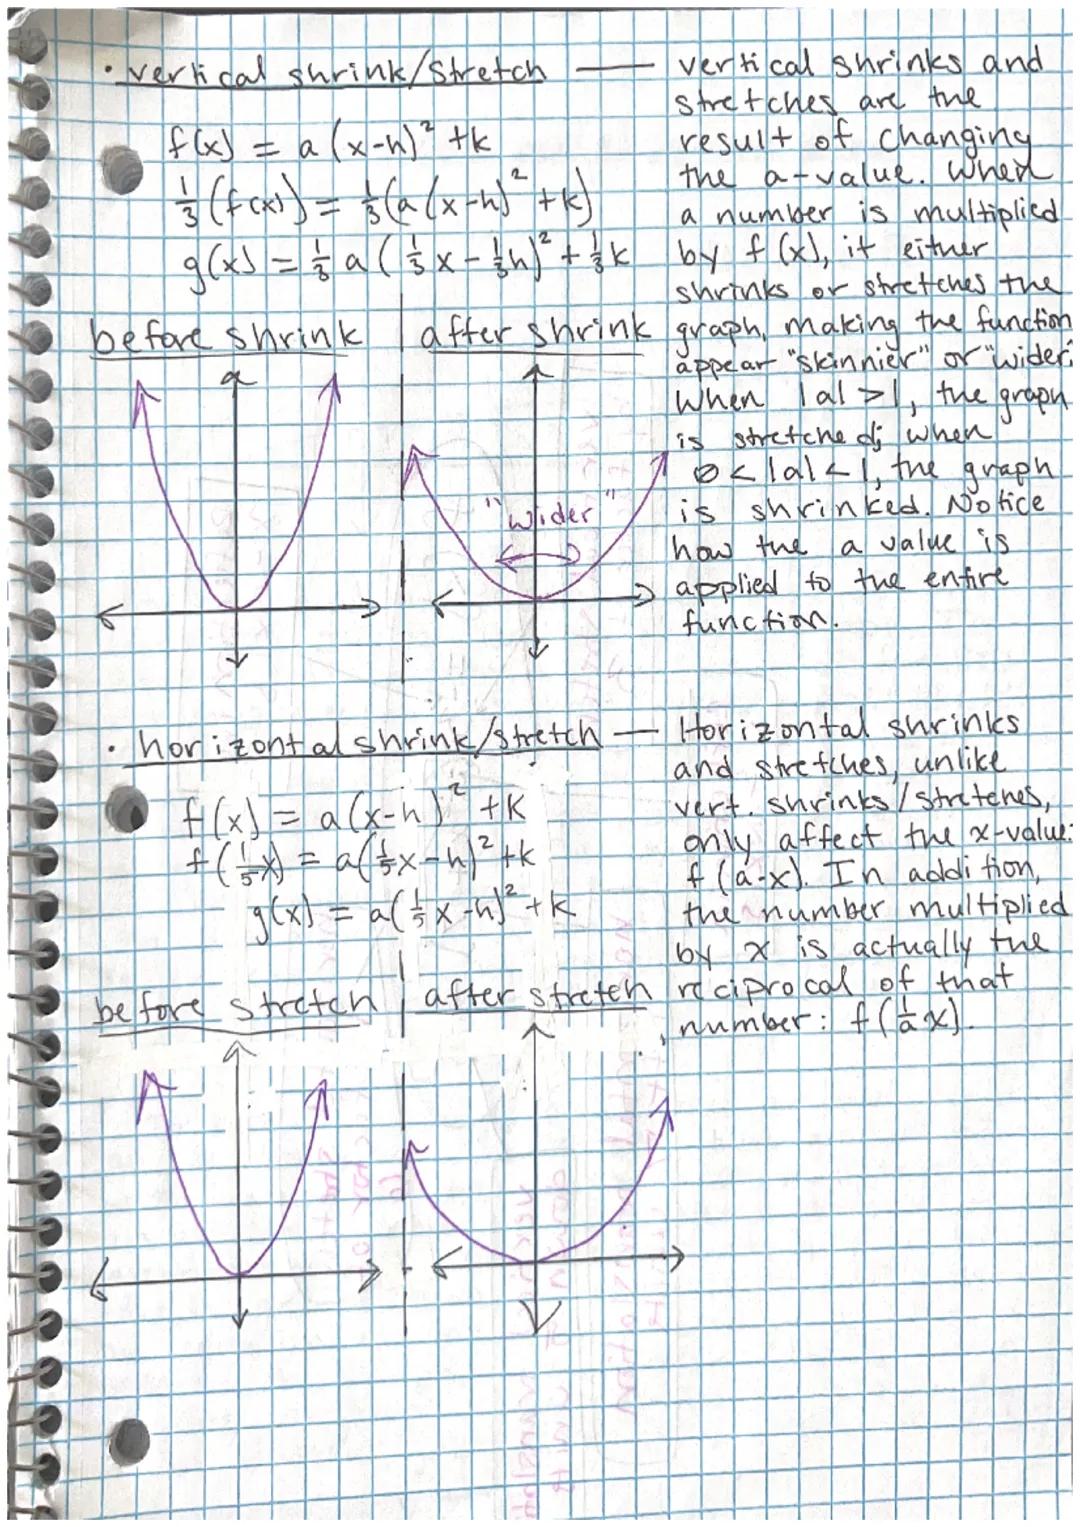 · vertical shrink/stretch —
f(x) = a(x-h)² +k
⅓(f(x)) = ⅓(a(x-h)² +k)
g(x) = ⅓a(⅓x - ⅓h)² + ⅓k
before shrink
after shrink
"wider"
vertical shrinks and
stretches are the
result of changing
the a-value. When
a number is multiplied
by f(x), it either
shrinks or stretches the
graph, making the function
appear "skinnier" or "wider."
When |a| >1, the graph
is stretched; when
0 < |a| < 1, the graph
is shrinked. Notice
how the a value is
applied to the entire
function.
· horizontal shrink/stretch —
f(x) = a(x-h)² +k
f(⅕x) = a(⅕x-h)² +k
g(x) = a(⅕x-h)² +k
before stretch
after stretch
Horizontal shrinks
and stretches, unlike
vert. shrinks/stretches,
only affect the x-value:
f(a·x). In addition,
the number multiplied
by x is actually the
reciprocal of that
number: f(1/a x).